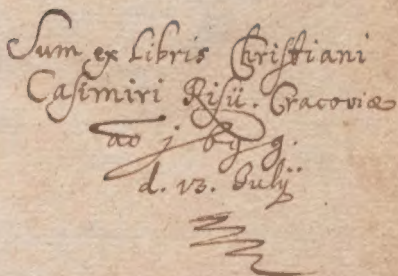 Sum ex Libris Christiani
Casimiri Risii. Cracoviæ
ao
d. 13. Julÿ